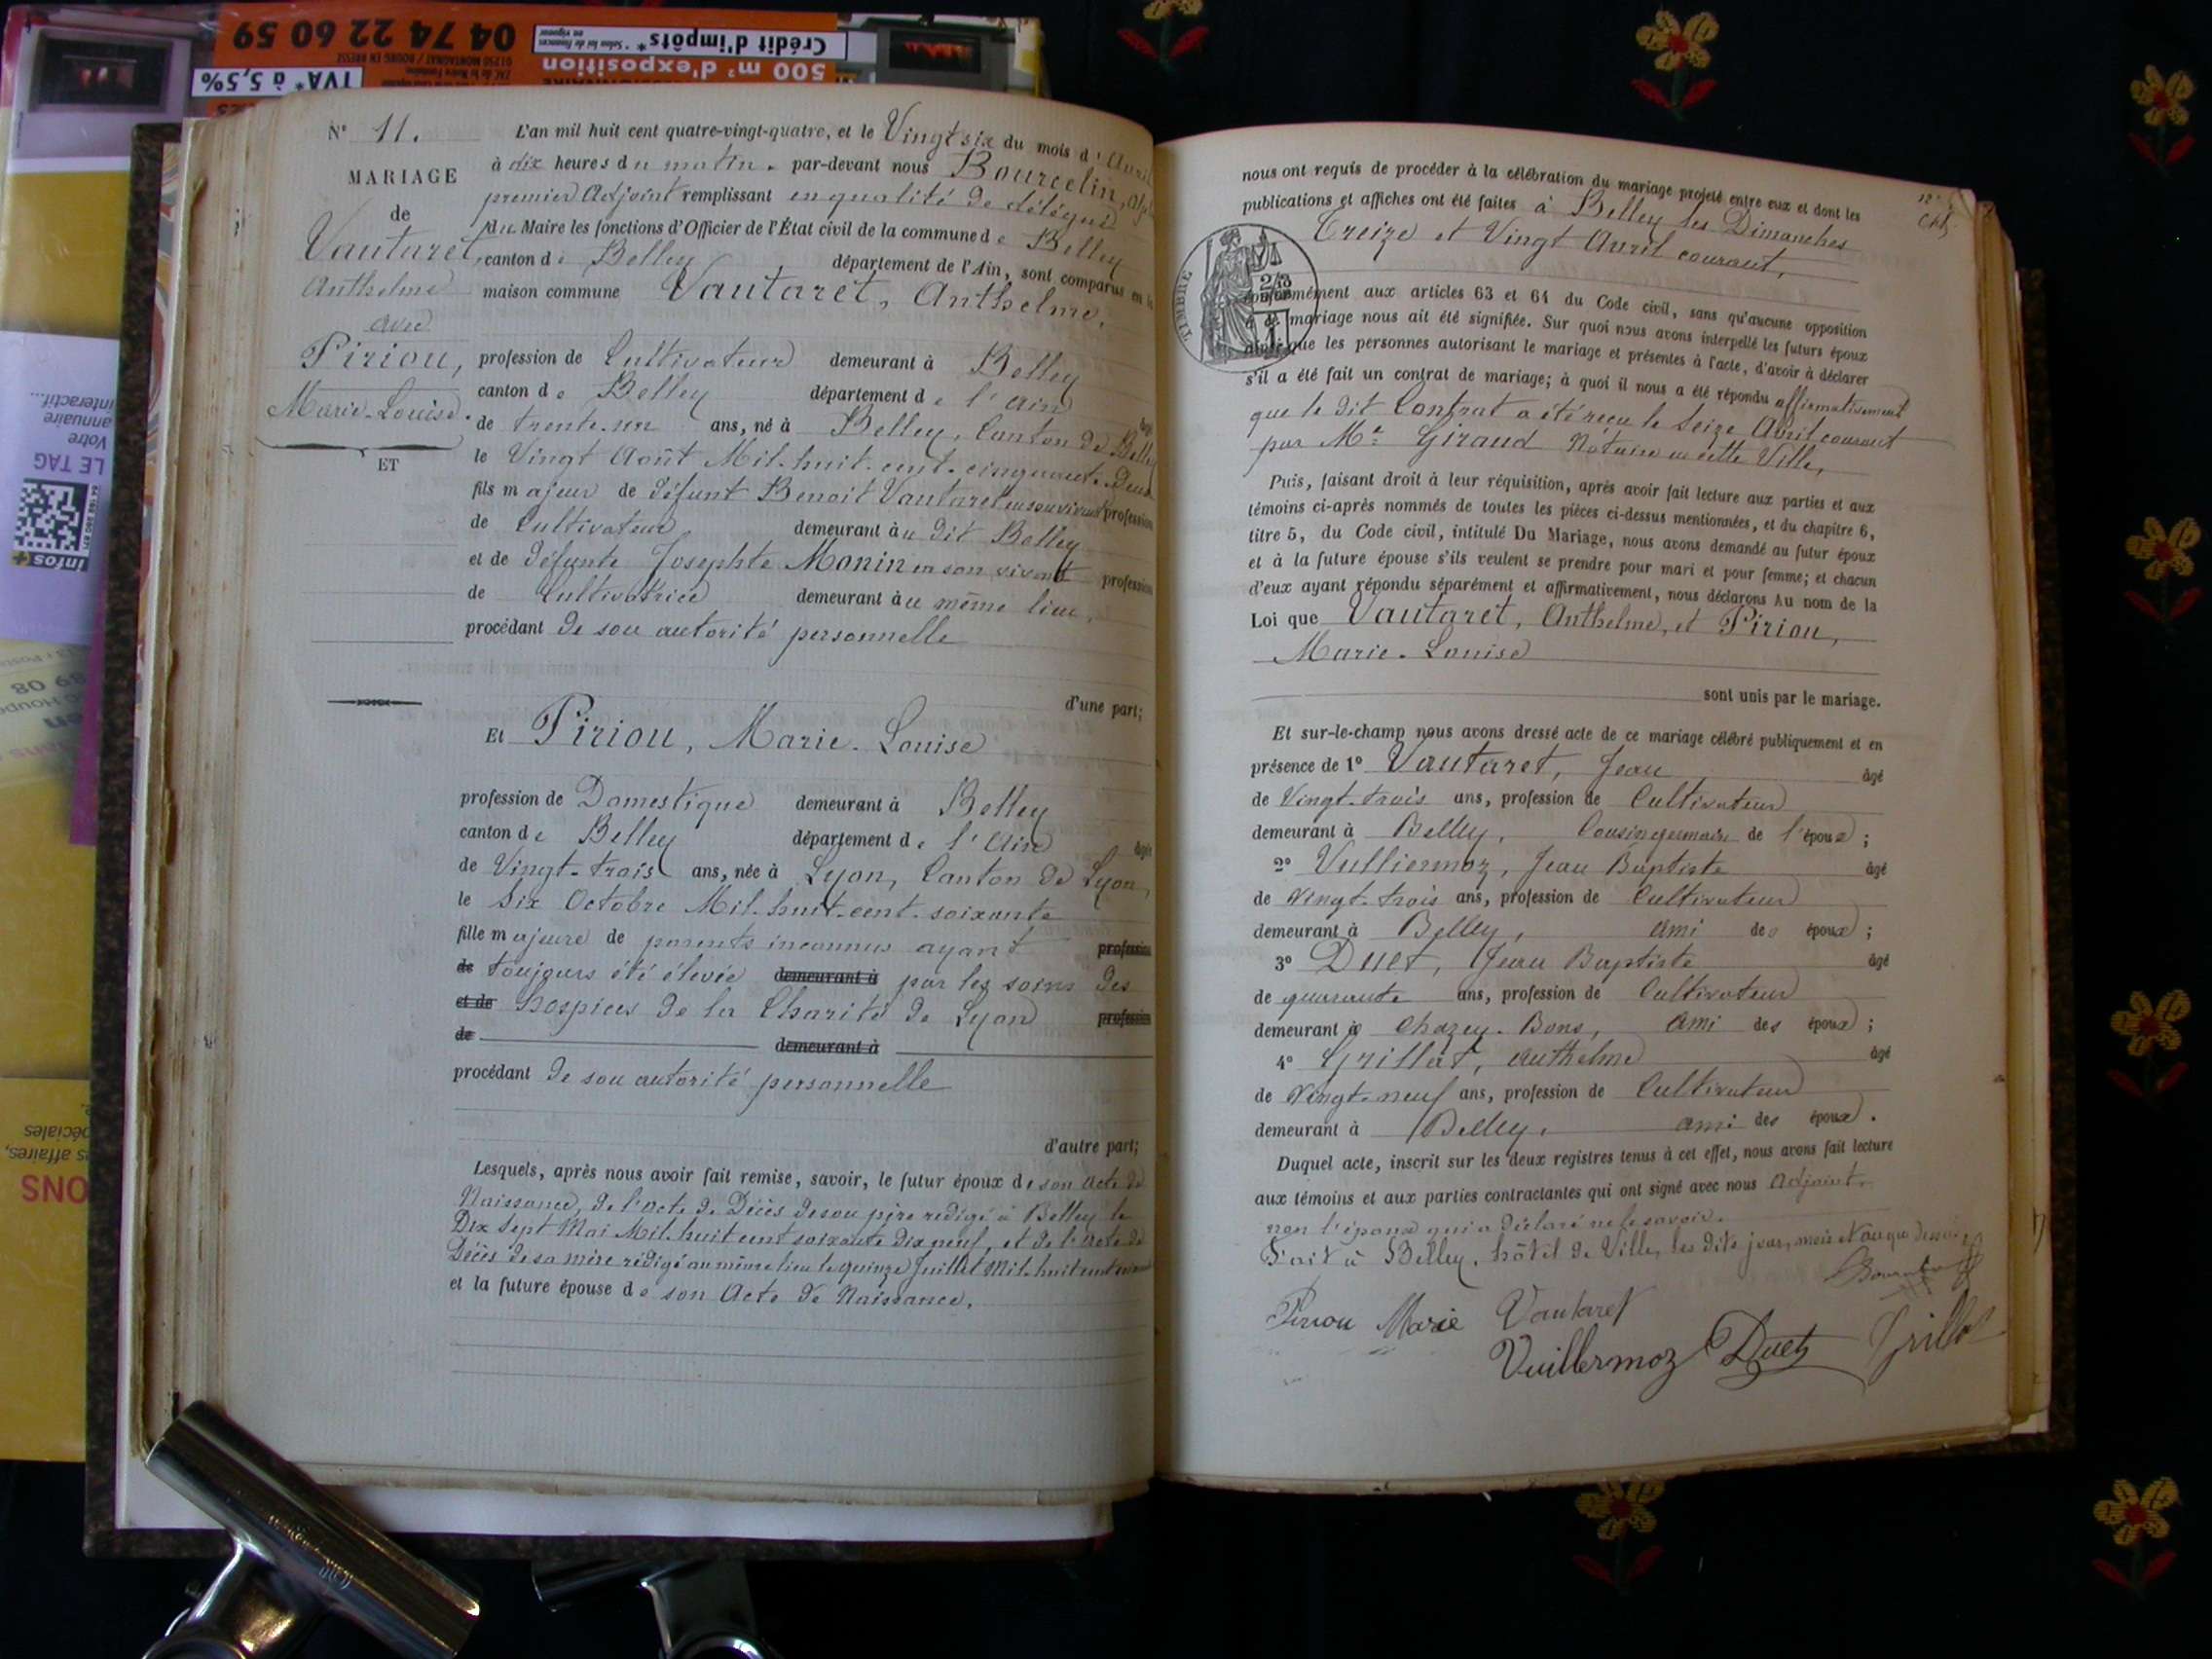 04 74 22 60 59
Crédit d'impôts*
500 m² d'exposition
TVA* à 5,5%
interactif...
annuaire
Votre
LE TAG
infos+
N° 11.
MARIAGE
de
Vautaret,
Anthelme
avec
Piriou,
Marie-Louise.
ET
L'an mil huit cent quatre-vingt-quatre, et le Vingt six du mois d'Avril
à dix heures du matin. par-devant nous Bourcelin,
premier Adjoint remplissant en qualité de délégué
du Maire les fonctions d'Officier de l'État civil de la commune de Belley
canton de Belley département de l'Ain, sont comparus en la
maison commune Vautaret, Anthelme,
profession de Cultivateur demeurant à Belley
canton de Belley département de l'Ain âgé
de trente-un ans, né à Belley, Canton de Belley
le Vingt Août Mil-huit-cent-cinquante-deux
fils majeur de défunt Benoit Vautaret en son vivant profession
de Cultivateur demeurant au dit Belley
et de défunte Josephte Monin en son vivant profession
de Cultivatrice demeurant au même lieu,
procédant de son autorité personnelle
d'une part;
Et Piriou, Marie-Louise
profession de Domestique demeurant à Belley
canton de Belley département de l'Ain âgée
de Vingt-trois ans, née à Lyon, Canton de Lyon,
le Six Octobre Mil-huit-cent-soixante
fille majeure de parents inconnus ayant profession
de toujours été élevée demeurant à par les soins des
et de hospices de la Charité de Lyon profession
de demeurant à
procédant de son autorité personnelle
d'autre part;
Lesquels, après nous avoir fait remise, savoir, le futur époux de son Acte de
Naissance, de l'acte de Décès de son père rédigé à Belley le
Dix Sept Mai Mil-huit cent soixante dix neuf, et de l'acte de
Décès de sa mère rédigé au même lieu le quinze Juillet Mil-huit cent
et la future épouse de son Acte de Naissance.
nous ont requis de procéder à la célébration du mariage projeté entre eux et dont les
publications et affiches ont été faites à Belley les Dimanches
Treize et Vingt Avril courant,
TIMBRE
conformément aux articles 63 et 64 du Code civil, sans qu'aucune opposition
à ce mariage nous ait été signifiée. Sur quoi nous avons interpellé les futurs époux
ainsi que les personnes autorisant le mariage et présentes à l'acte, d'avoir à déclarer
s'il a été fait un contrat de mariage; à quoi il nous a été répondu affirmativement
que le dit Contrat a été reçu le Seize Avril courant
par Me Giraud Notaire en cette Ville,
Puis, faisant droit à leur réquisition, après avoir fait lecture aux parties et aux
témoins ci-après nommés de toutes les pièces ci-dessus mentionnées, et du chapitre 6,
titre 5, du Code civil, intitulé Du Mariage, nous avons demandé au futur époux
et à la future épouse s'ils veulent se prendre pour mari et pour femme; et chacun
d'eux ayant répondu séparément et affirmativement, nous déclarons Au nom de la
Loi que Vautaret, Anthelme, et Piriou,
Marie-Louise
sont unis par le mariage.
Et sur-le-champ nous avons dressé acte de ce mariage célébré publiquement et en
présence de 1° Vautaret, Jean âgé
de Vingt-trois ans, profession de Cultivateur
demeurant à Belley, Cousin germain de l'époux;
2° Vulliermoz, Jean Baptiste âgé
de Vingt-trois ans, profession de Cultivateur
demeurant à Belley, ami des époux;
3° Duet, Jean Baptiste âgé
de quarante ans, profession de Cultivateur
demeurant à Chazey-Bons, ami des époux;
4° Grillat, Anthelme âgé
de Vingt-neuf ans, profession de Cultivateur
demeurant à Belley, ami des époux.
Duquel acte, inscrit sur les deux registres tenus à cet effet, nous avons fait lecture
aux témoins et aux parties contractantes qui ont signé avec nous Adjoint,
non l'époux qui a déclaré ne le savoir.
Fait à Belley, hôtel de Ville, les dits jour, mois et an que dessus
Piriou Marie Vautaret
Vuillermoz Duet Grillat